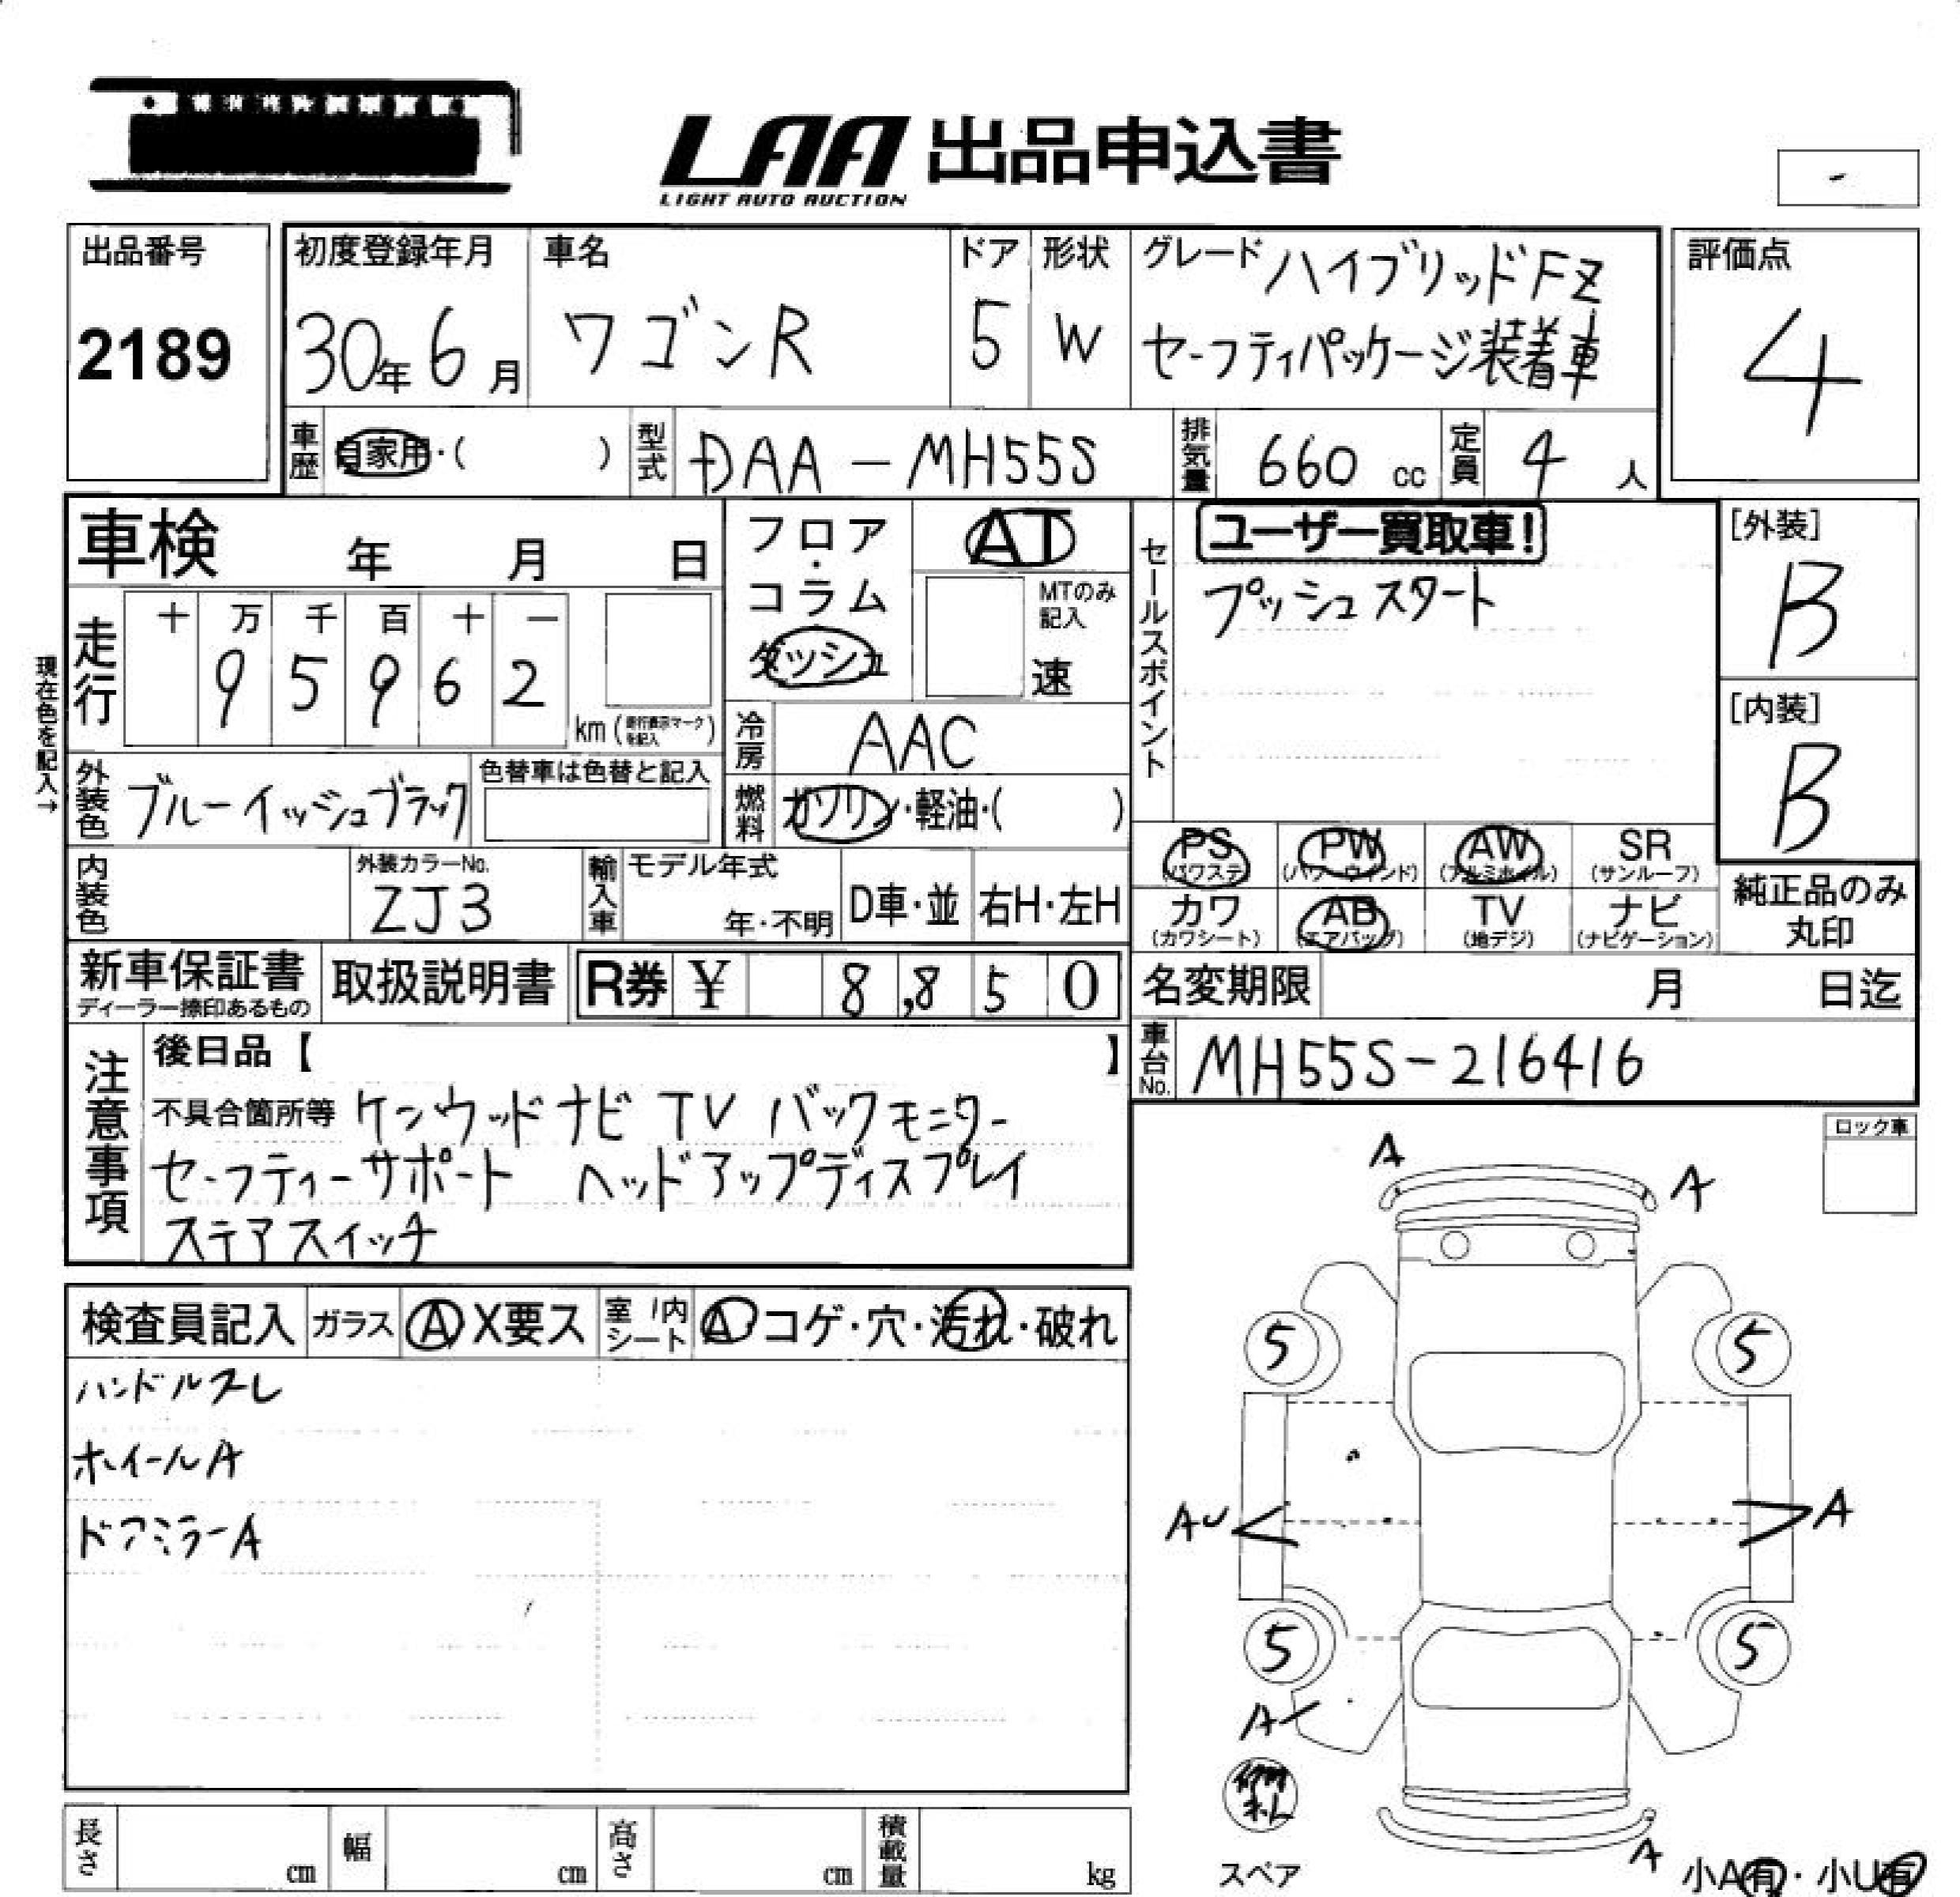 LAA 出品申込書
LIGHT AUTO AUCTION
-
出品番号
2189
初度登録年月
30年6月
車名
ワゴンR
ドア
5
形状
W
グレード ハイブリッドFZ
セーフティパッケージ装着車
評価点
4
車歴 自家用・( )
型式 DAA-MH55S
排気量 660 cc
定員 4 人
車検 年 月 日
走行
十 万 千 百 十 一
9 5 9 6 2
km (走行表示マークを記入)
現在色を記入→
フロア・コラム
ダッシュ
AT
MTのみ記入
速
冷房 AAC
燃料 ガソリン・軽油・( )
セールスポイント
ユーザー買取車!
プッシュスタート
[外装]
B
[内装]
B
外装色 ブルーイッシュブラック
色替車は色替と記入
内装色
外装カラーNo.
ZJ3
輸入車
モデル年式
年・不明
D車・並
右H・左H
PS (パワステ)
PW (パワーウインド)
AW (アルミホイル)
SR (サンルーフ)
カワ (カワシート)
AB (エアバッグ)
TV (地デジ)
ナビ (ナビゲーション)
純正品のみ
丸印
新車保証書
ディーラー捺印あるもの
取扱説明書
R券 ¥ 8,850
名変期限 月 日迄
車台No. MH55S-216416
注意事項
後日品【 】
不具合箇所等 ケンウッドナビ TV バックモニター
セーフティーサポート ヘッドアップディスプレイ
ステアスイッチ
ロック車
検査員記入
ガラス A X要ス
室内シート A コゲ・穴・汚れ・破れ
ハンドルスレ
ホイールA
ドアミラーA
A
A
5
5
AU
A
5
5
A
スペア
A
小A有・小U有
長さ cm
幅 cm
高さ cm
積載量 kg